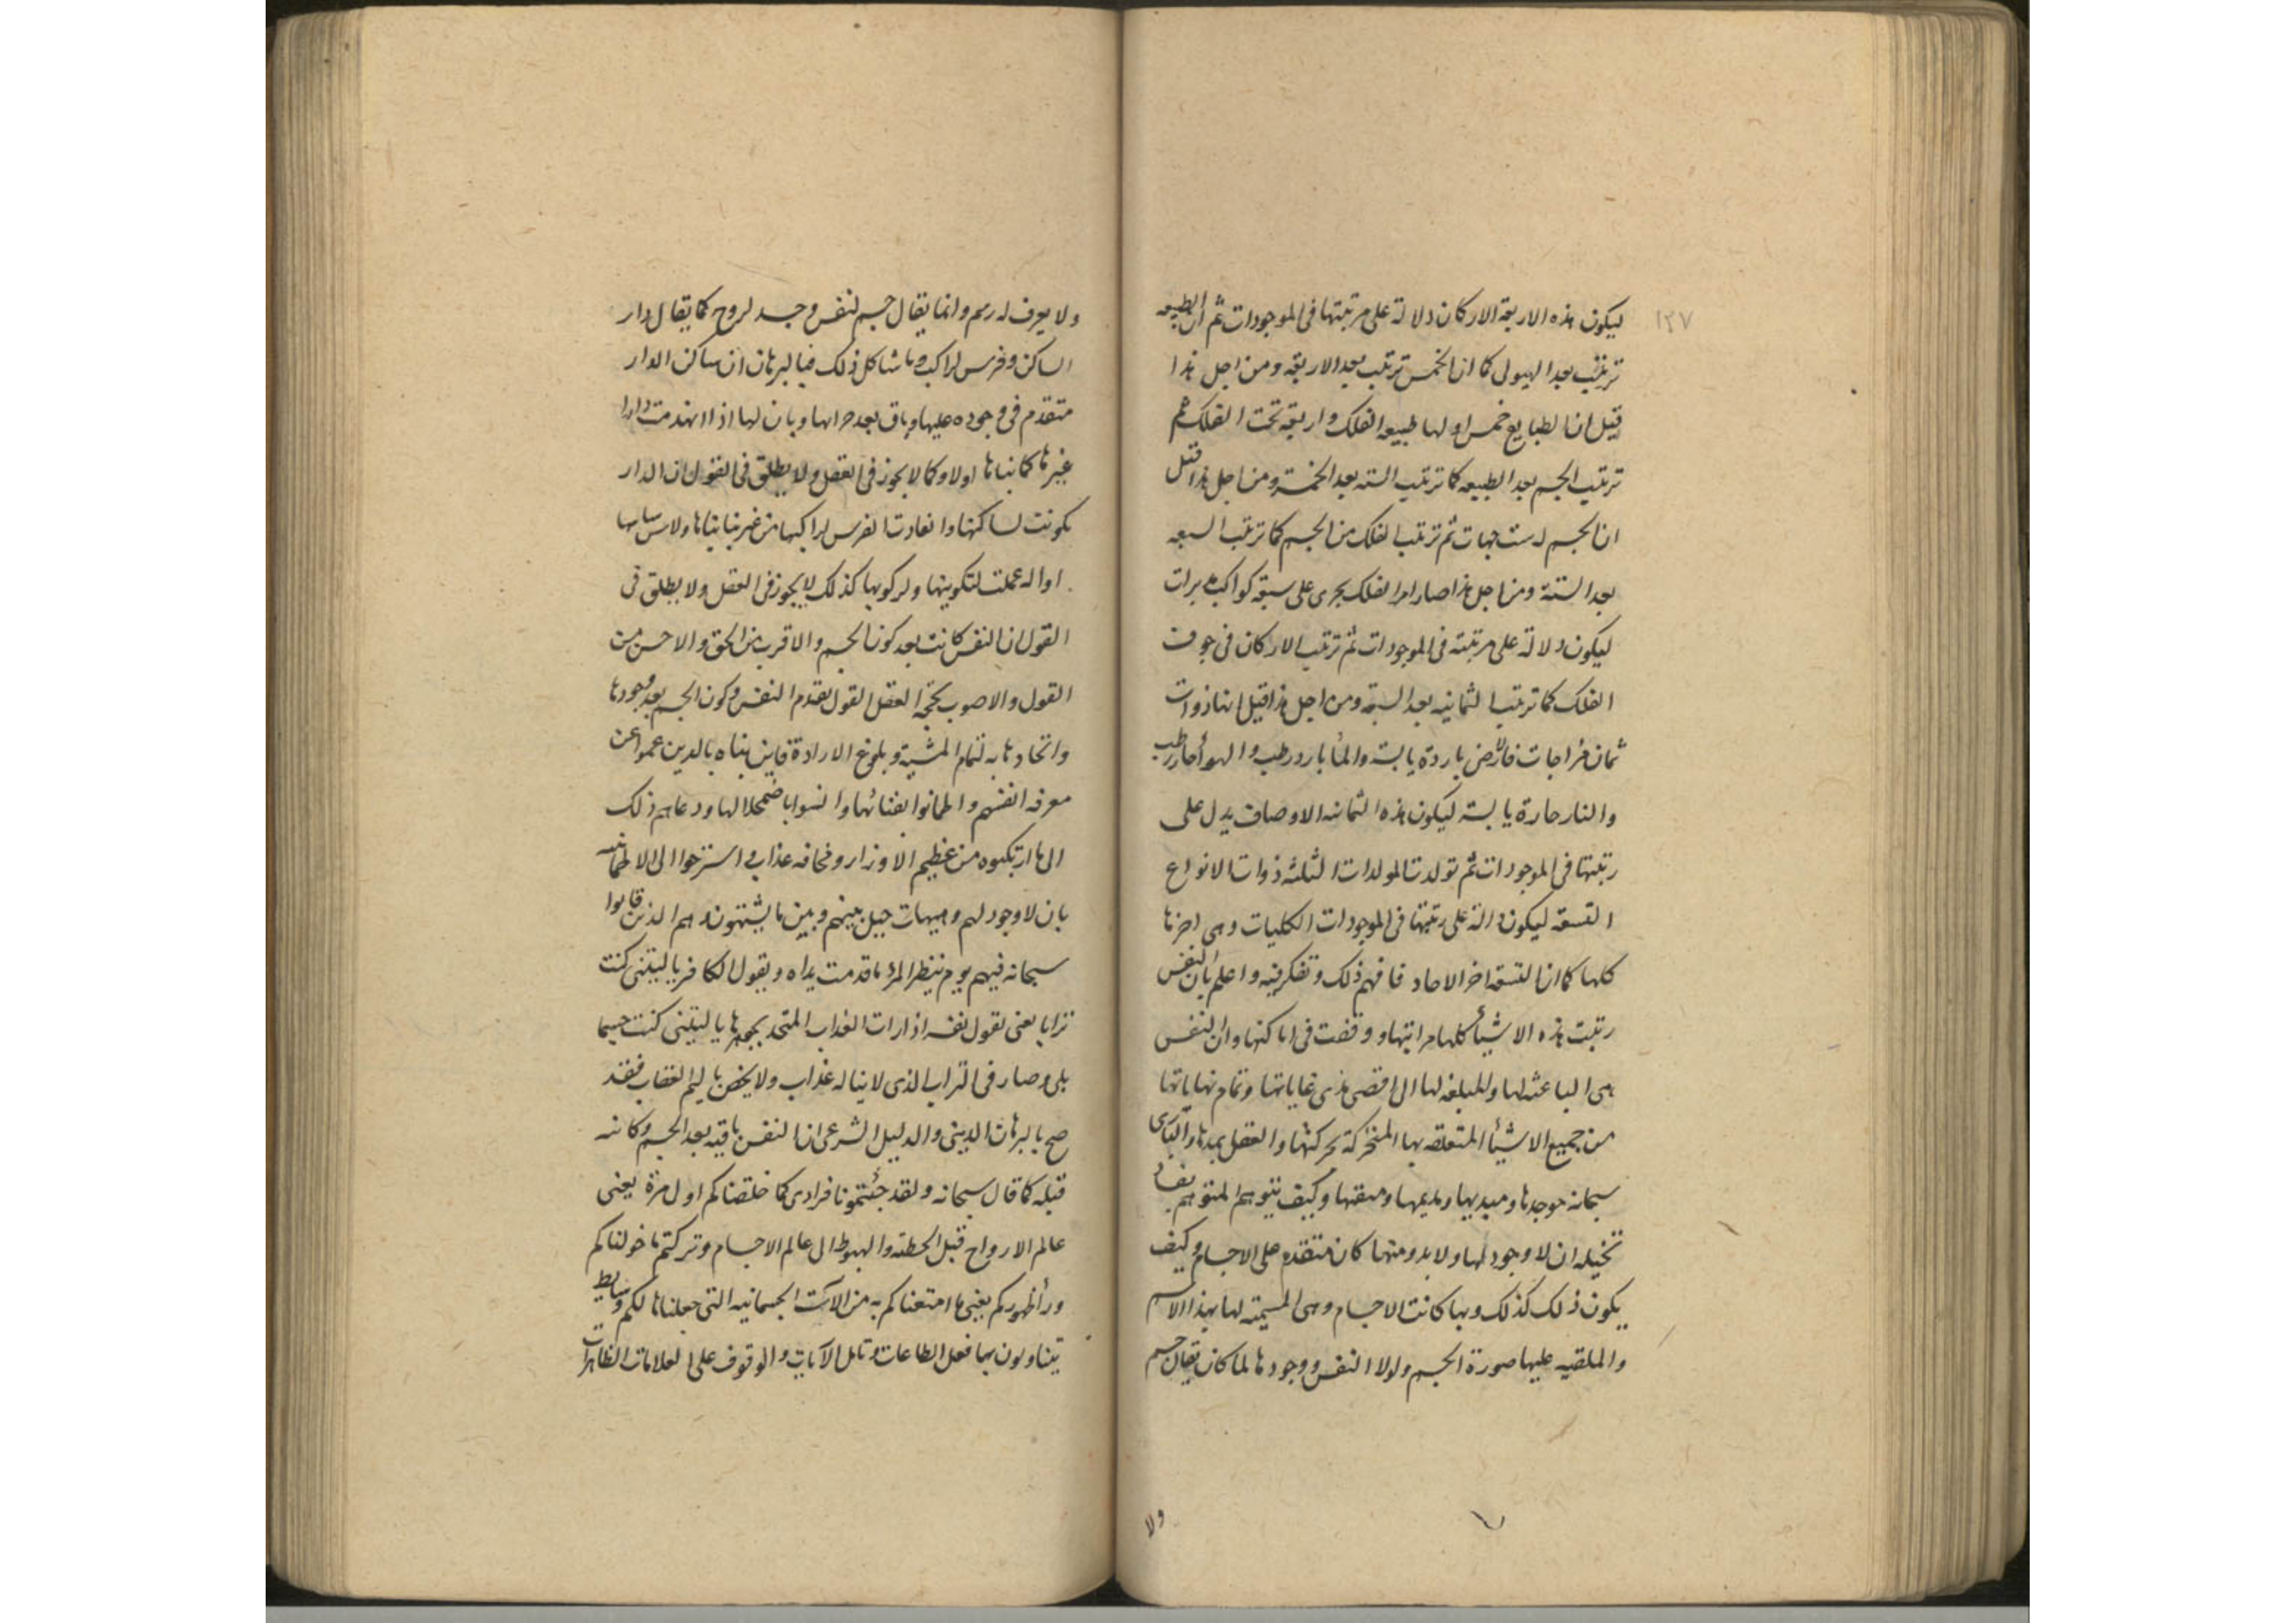 ١٢٧
ليكون هذه الاربعة الاركان دلالة على مرتبتها فى الموجودات ثم ان الطبيعه
ترتبت بعد الهيولى كما ان الخمس ترتب بعد الاربعة ومن اجل هذا
قيل ان الطبايع خمس اولها طبيعه الفلك واربعة تحت الفلك ثم
ترتيب الجسم بعد الطبيعه كما ترتيب السته بعد الخمسة ومن اجل هذا قيل
ان الجسم له ست جهات ثم ترتب الفلك من الجسم كما ترتب السبعه
بعد الستة ومن اجل هذا صار امر الفلك يجرى على سبعة كواكب مدبرات
ليكون دلالة على مرتبته فى الموجودات ثم ترتيب الاركان فى جوف
الفلك كما ترتب الثمانيه بعد السبعة ومن اجل هذا قيل انها ذوات
ثمان مزاجات فالارض باردة يابسة والمأ بارد رطب والهوأ حار رطب
والنار حارة يابسة ليكون هذه الثمانيه الاوصاف يدل على
رتبتها فى الموجودات ثم تولدت المولدات الثلثه ذوات الانواع
التسعة ليكون دالة على رتبتها فى الموجودات الكليات وهى اخرها
كلها كما ان التسعة اخر الاحاد فافهم ذلك وتفكر فيه واعلم بان النفس
رتبت هذه الاشيأ كلها مراتبها ووقفت فى اماكنها وان النفس
هى الباعثه لها والمبلغه لها الى اقصى مدى غاياتها وتمام نهاياتها
من جميع الاشيأ المتعلقه بها المتحركة بحركتها والعقل يمدها والبارى
سبحانه موجدها ومبديها ومديمها ومبقيها وكيف يتوهم المتوهم
تخيله ان لا وجود لها ولا بدو منها كان متقدم على الاجسام وكيف
يكون ذلك كذلك وبها كانت الاجسام وهى المسميّة لها بهذا الاسم
والملقيه عليها صورة الجسم ولولا النفس ووجودها لما كان يقال جسم
ولا
ولا يعرف له رسم وانما يقال جسم لنفس وجسد لروح كما يقال دار
الساكن وفرس لراكب وما شاكل ذلك فبالبرهان ان ساكن الدار
متقدم فى وجوده عليها وباق بعد خرابها وبان لها اذا انهدمت دارا
غيرها كما بناها اولا وكما لا يجوز فى العقل ولا يطلق فى القول ان الدار
كونت لساكنها وانقادت الفرس لراكبها من غير بنا بناها ولا سايس ساسها
او اله عملت لتكوينها ولركوبها كذلك لا يجوز فى العقل ولا يطلق فى
القول ان النفس كانت بعد كون الجسم والاقرب من الحق والاحسن من
القول والاصوب بحجّة العقل القول بتقدم النفس وكون الجسم بعد وجودها
واتحادها به لتمام المشية وبلوغ الارادة فاين يتاه بالدين عموا عن
معرفه انفسهم واطمانوا بفنائها وانسوا باضمحلالها ودعاهم ذلك
الى ما ارتكبوه من عظيم الاوزار ومخافه عذاب استرحوا الى الاطمانينه
بان لا وجود لهم وهيهات حيل بينهم وبين ما يشتهون وهم الذين قالوا
سبحانه فيهم يوم ينظر المرء ما قدمت يداه ويقول الكافر يا ليتنى كنت
ترابا يعنى تقول نفسه اذا رات العذاب المتحد بجوهرها يا ليتنى كنت جسما
بلى وصار فى التراب الذى لا يناله عذاب ولا يخص باليم العقاب فقد
صح بالبرهان الدينى والدليل الشرعى ان النفس باقيه بعد الجسم وكائنه
قبله كما قال سبحانه ولقد جئتمونا فرادى كما خلقناكم اول مرة يعنى
عالم الارواح قبل الحطته والهبوط الى عالم الاجسام وتركتم ما خولناكم
ورأ ظهوركم يعنى ما امتعناكم به من الآلات الجسمانيه التى جعلناها لكم وسايط
يتناولون بها فعل الطاعات وتامل الآيات والوقوف على العلامات الظاهرات